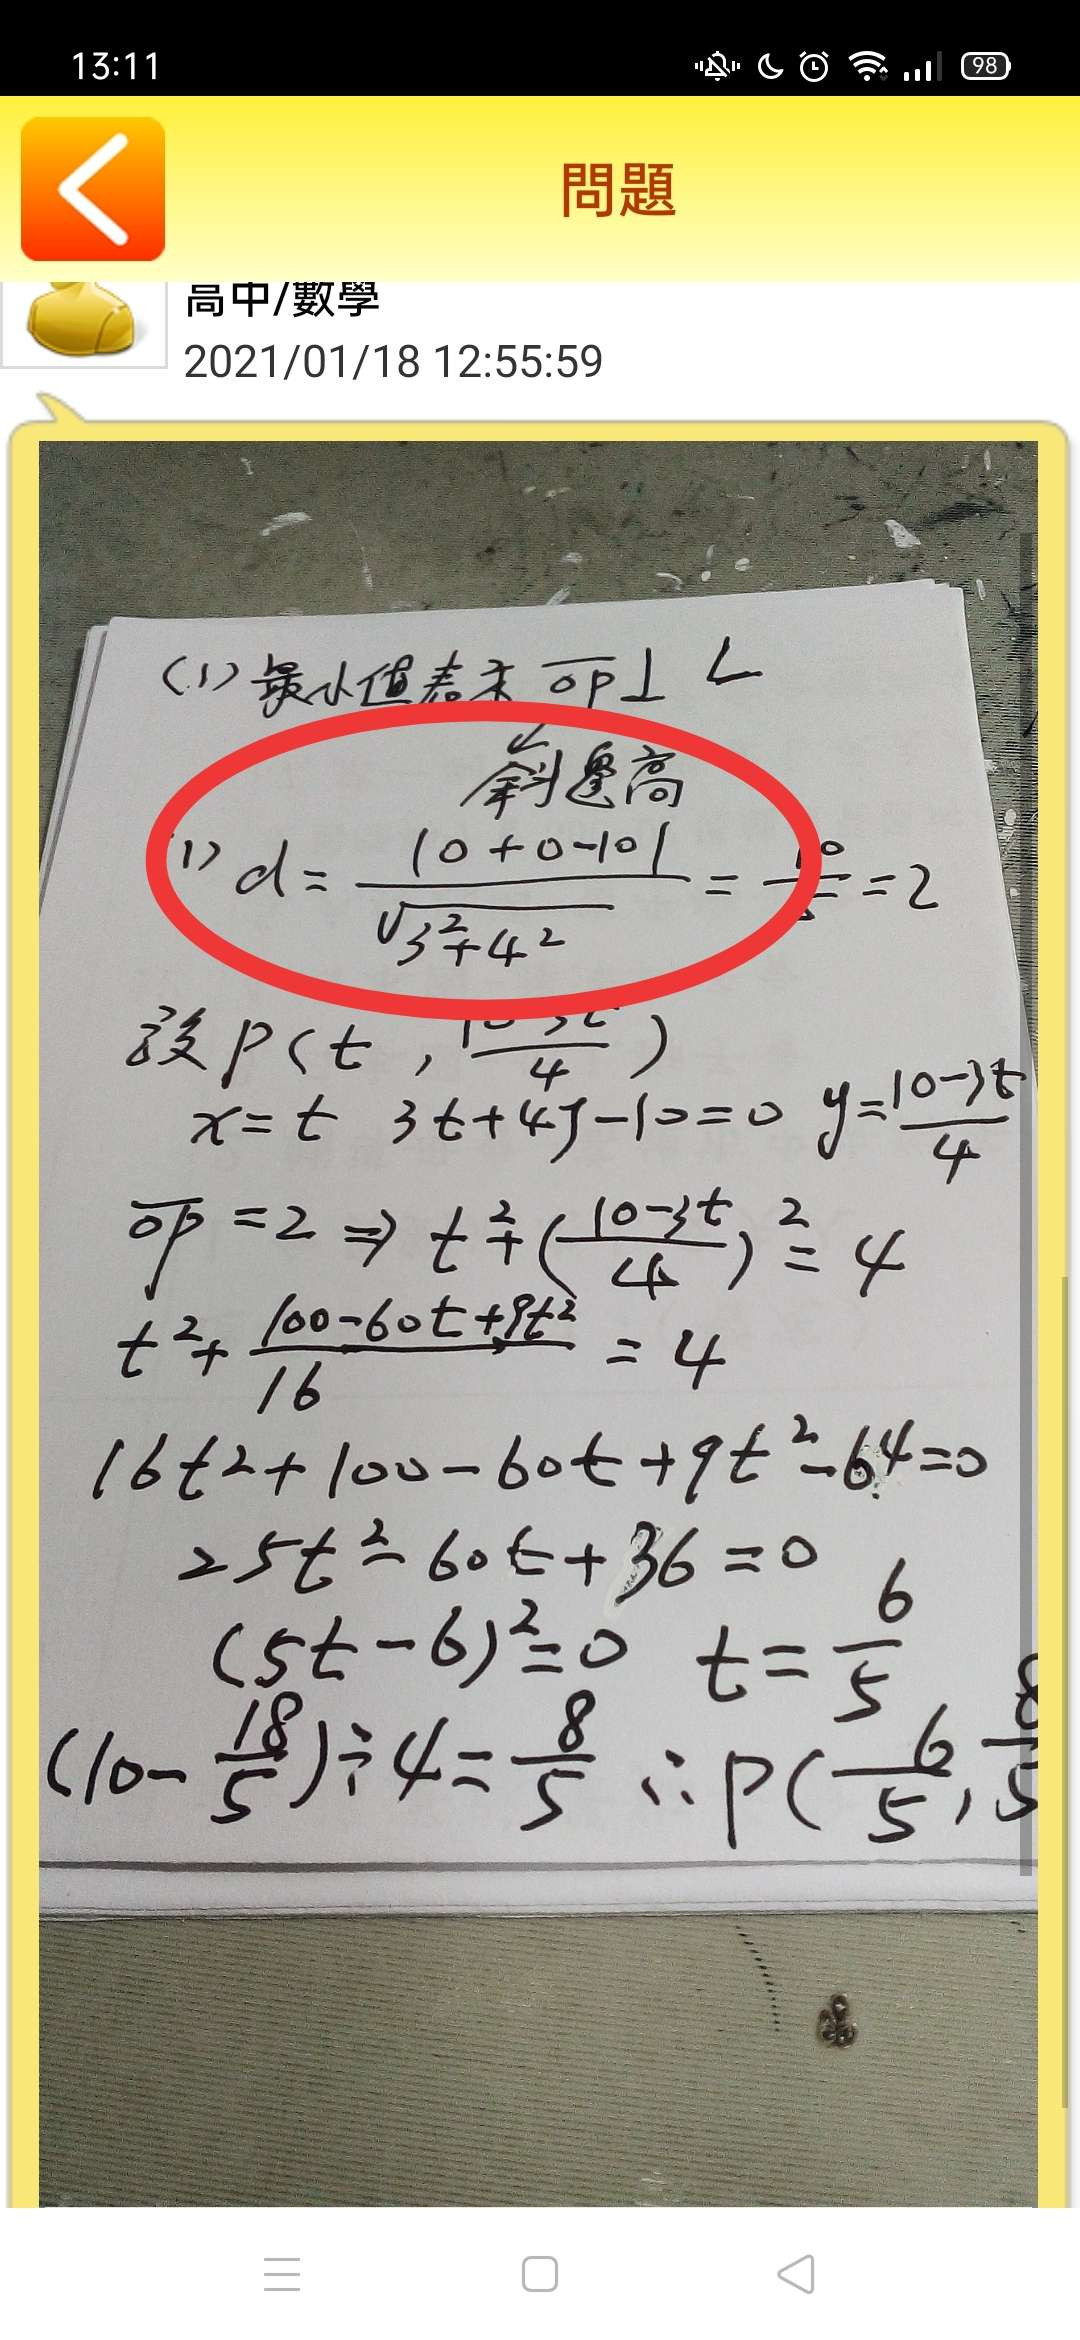 13:11
98
問題
高中/數學
2021/01/18 12:55:59
(1) 最小值表示 OP⊥L
斜邊高
(1) d = |0+0-10| / √3²+4² = 10/5 = 2
設P(t, 10-3t/4)
x=t 3t+4y-10=0 y=10-3t/4
OP=2 ⇒ t²+(10-3t/4)²=4
t²+100-60t+9t²/16=4
16t²+100-60t+9t²-64=0
25t²-60t+36=0
(5t-6)²=0 t=6/5
(10-18/5)÷4=8/5 ∴P(6/5,8/5